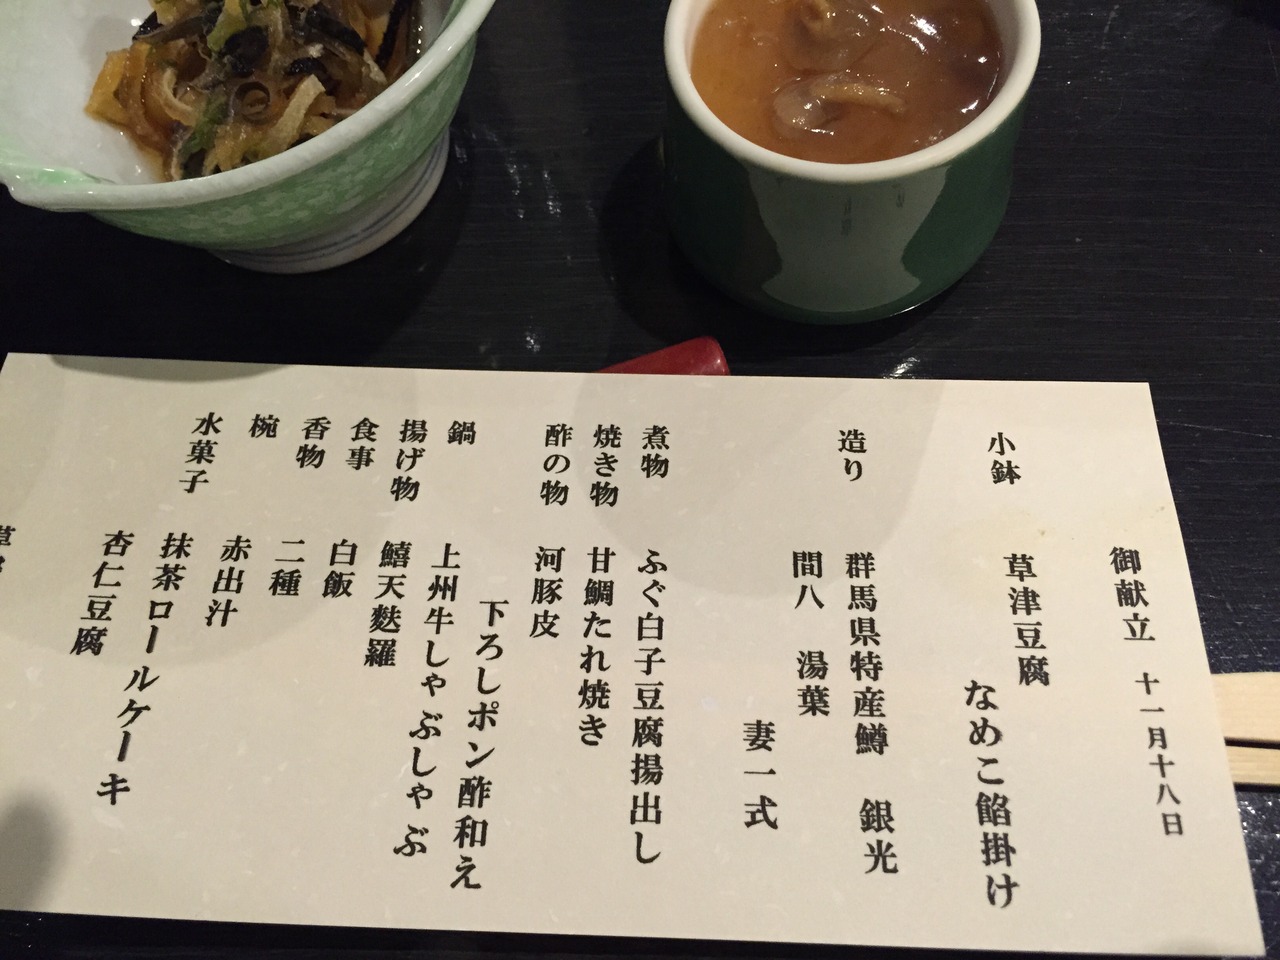 御献立 十一月十八日
小鉢 草津豆腐
なめこ餡掛け
造り 群馬県特産鱒 銀光
間八 湯葉
妻一式
煮物 ふぐ白子豆腐揚出し
焼き物 甘鯛たれ焼き
酢の物 河豚皮
下ろしポン酢和え
鍋 上州牛しゃぶしゃぶ
揚げ物 鱚天麩羅
食事 白飯
香物 二種
椀 赤出汁
水菓子 抹茶ロールケーキ
杏仁豆腐